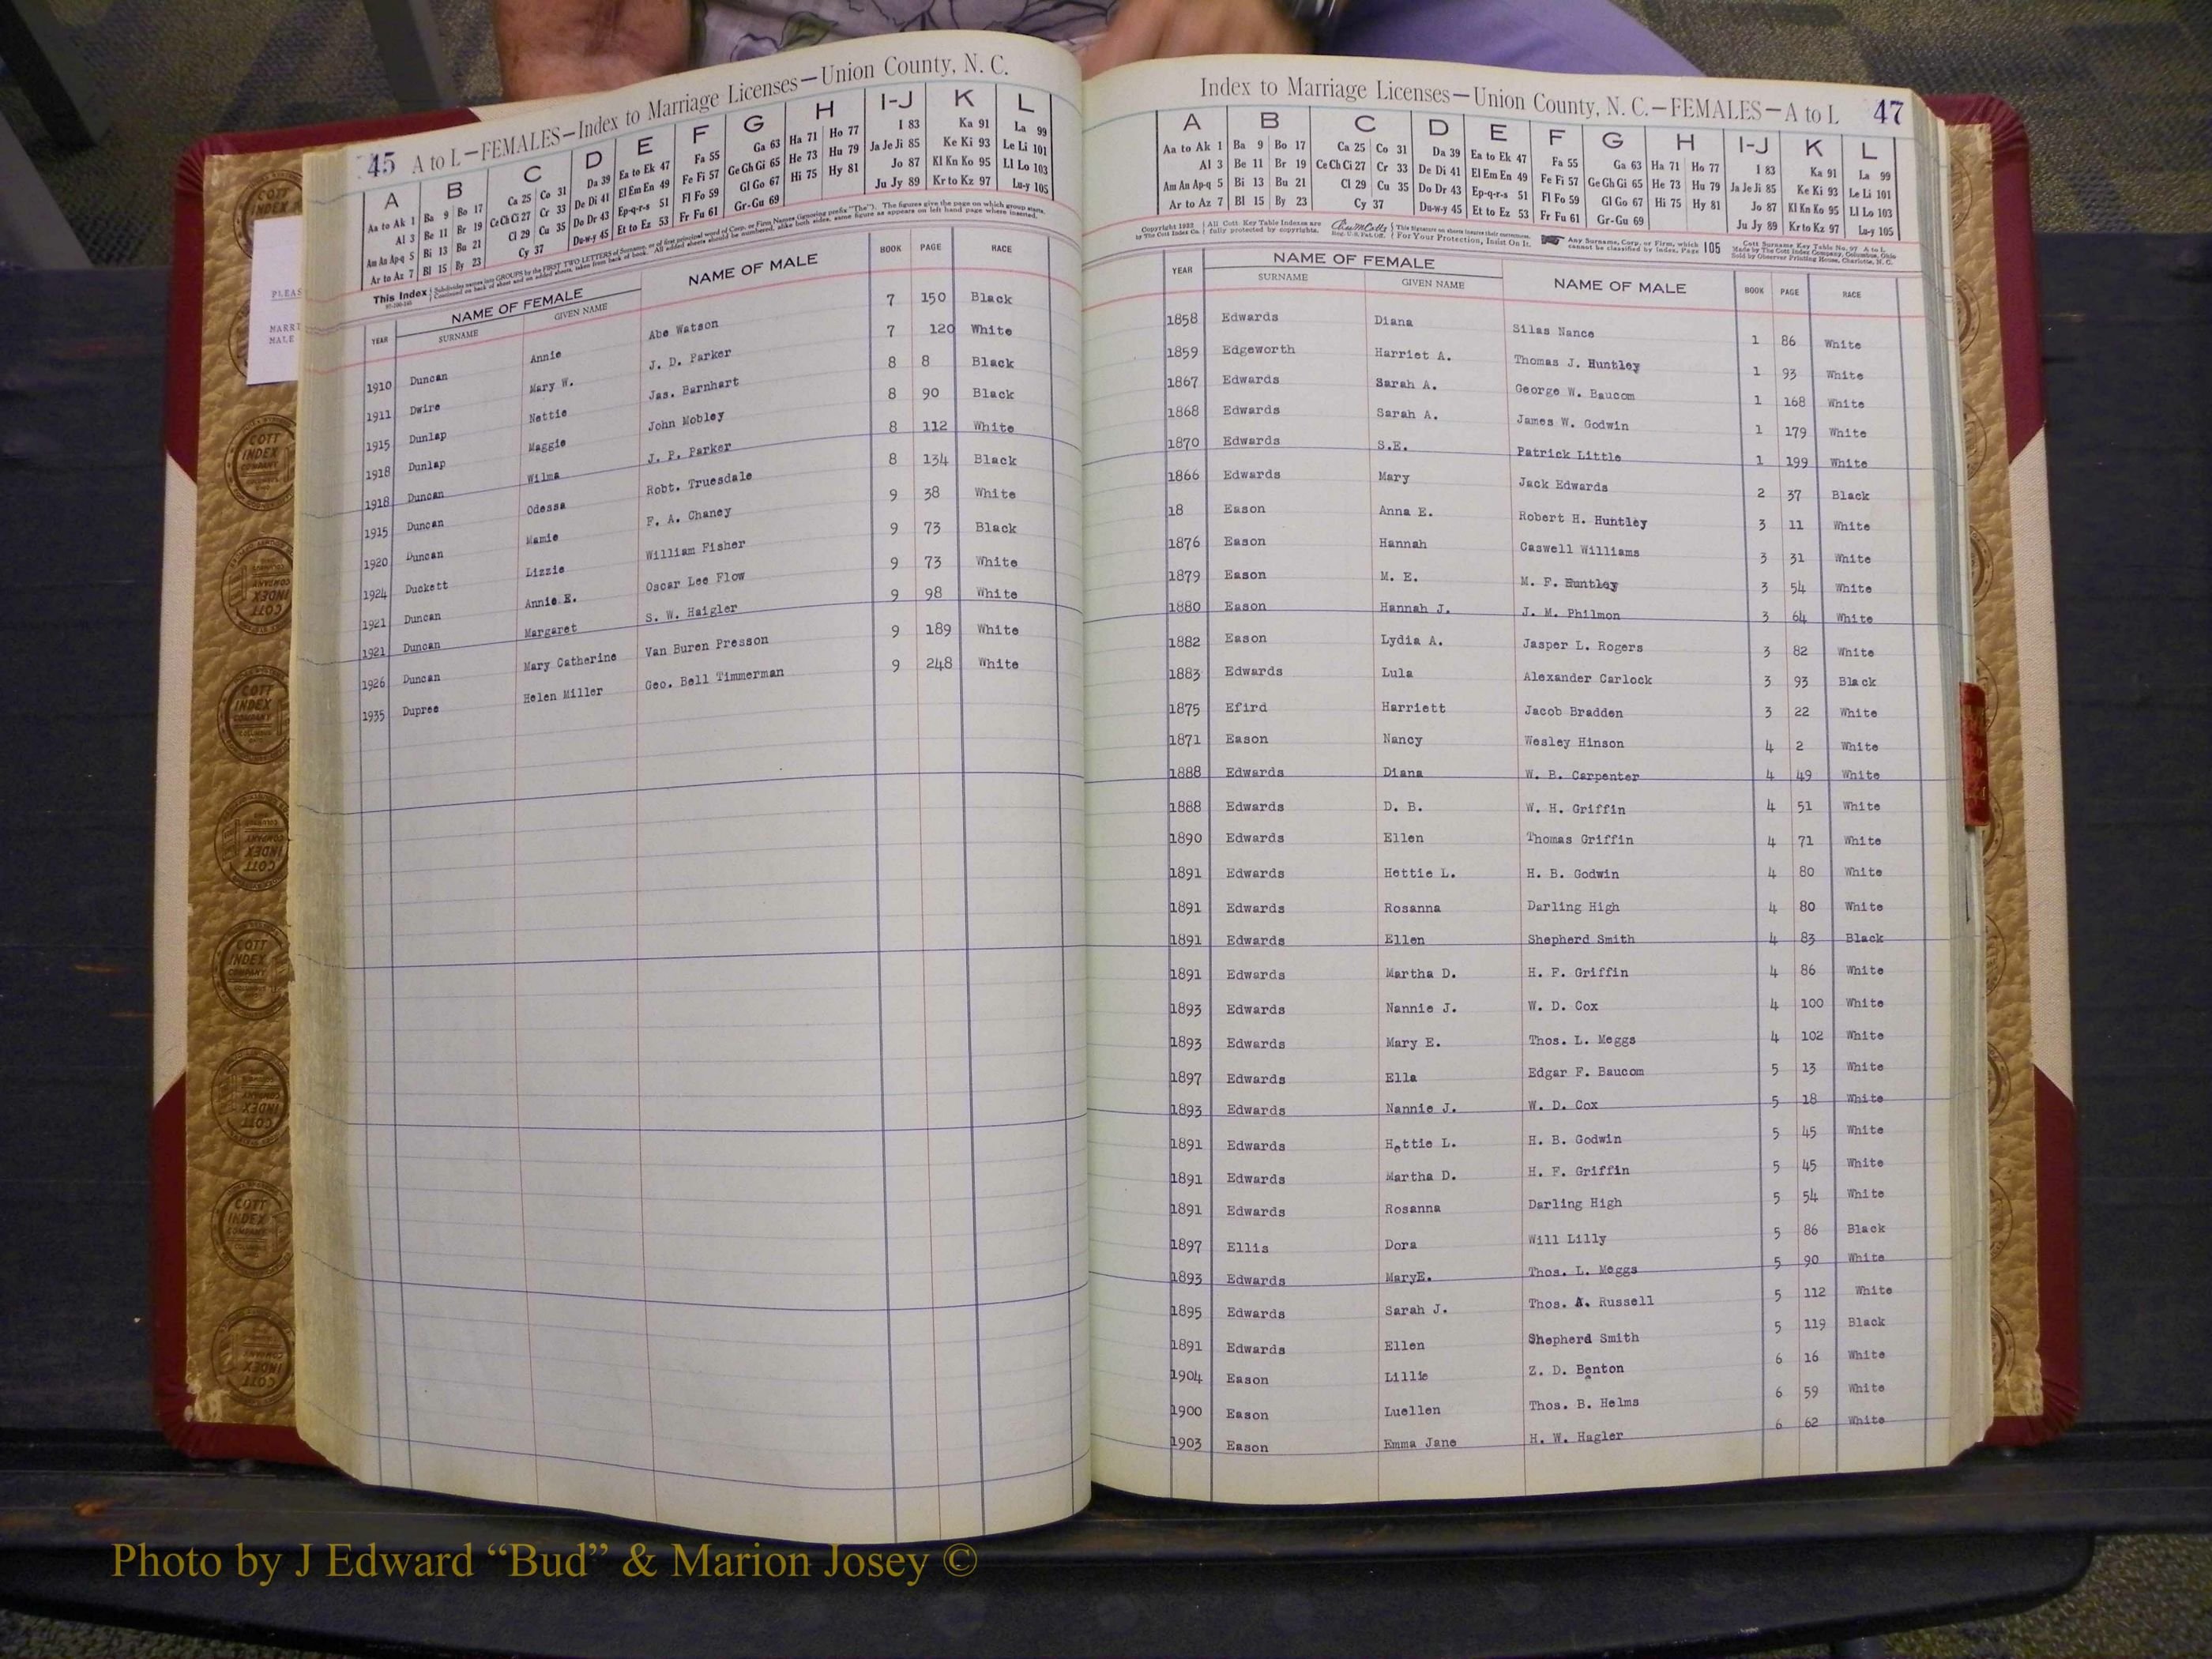 45 A to L—FEMALES—Index to Marriage Licenses—Union County, N. C.
A B C D E F G H I-J K L
Aa to Ak 1 Ba 9 Bo 17 Ca 25 Co 31 Da 39 Ea to Ek 47 Fa 55 Ga 63 Ha 71 Ho 77 I 83 Ka 91 La 99
Al 3 Be 11 Br 19 Ce Ch Ci 27 Cr 33 De Di 41 El Em En 49 Fe Fi 57 Ge Gh Gi 65 He 73 Hu 79 Ja Je Ji 85 Ke Ki 93 Le Li 101
Am An Ap-q 5 Bi 13 Bu 21 Cl 29 Cu 35 Do Dr 43 Ep-q-r-s 51 Fl Fo 59 Gl Go 67 Hi 75 Hy 81 Jo 87 Kl Kn Ko 95 Ll Lo 103
Ar to Az 7 Bl 15 By 23 Cy 37 Du-w-y 45 Et to Ez 53 Fr Fu 61 Gr-Gu 69 Ju Jy 89 Kr to Kz 97 Lu-y 105
This Index Subdivides names into GROUPS by the FIRST TWO LETTERS of Surname, or of first principal word of Corp. or Firm Names (ignoring prefix "The"). The figures give the page on which group starts.
Continued on back of sheet and on added sheets, taken from back of book. All added sheets should be numbered, alike both sides, same figure as appears on left hand page where inserted.
YEAR NAME OF FEMALE NAME OF MALE BOOK PAGE RACE
SURNAME GIVEN NAME
1910 Duncan Annie Abe Watson 7 150 Black
1911 Dwire Mary W. J. D. Parker 7 120 White
1915 Dunlap Nettie Jas. Barnhart 8 8 Black
1918 Dunlap Maggie John Mobley 8 90 Black
1918 Duncan Wilma J. P. Parker 8 112 White
1915 Duncan Odessa Robt. Truesdale 8 134 Black
1920 Duncan Mamie F. A. Chaney 9 38 White
1924 Duckett Lizzie William Fisher 9 73 Black
1921 Duncan Annie E. Oscar Lee Flow 9 73 White
1921 Duncan Margaret S. W. Haigler 9 98 White
1926 Duncan Mary Catherine Van Buren Presson 9 189 White
1935 Dupree Helen Miller Geo. Bell Timmerman 9 248 White
PLEAS
MARRI
MALE
Index to Marriage Licenses—Union County, N. C.—FEMALES—A to L 47
A B C D E F G H I-J K L
Aa to Ak 1 Ba 9 Bo 17 Ca 25 Co 31 Da 39 Ea to Ek 47 Fa 55 Ga 63 Ha 71 Ho 77 I 83 Ka 91 La 99
Al 3 Be 11 Br 19 Ce Ch Ci 27 Cr 33 De Di 41 El Em En 49 Fe Fi 57 Ge Gh Gi 65 He 73 Hu 79 Ja Je Ji 85 Ke Ki 93 Le Li 101
Am An Ap-q 5 Bi 13 Bu 21 Cl 29 Cu 35 Do Dr 43 Ep-q-r-s 51 Fl Fo 59 Gl Go 67 Hi 75 Hy 81 Jo 87 Kl Kn Ko 95 Ll Lo 103
Ar to Az 7 Bl 15 By 23 Cy 37 Du-w-y 45 Et to Ez 53 Fr Fu 61 Gr-Gu 69 Ju Jy 89 Kr to Kz 97 Lu-y 105
Copyright 1932 by The Cott Index Co. All Cott Key Table Indexes are fully protected by copyrights. For Your Protection, Insist On It. Any Surname, Corp. or Firm, which cannot be classified by Index, Page 105 Cott Surname Key Table No. 97 A to L Made by The Cott Index Company, Columbus, Ohio Sold by Observer Printing House, Charlotte, N. C.
YEAR NAME OF FEMALE NAME OF MALE BOOK PAGE RACE
SURNAME GIVEN NAME
1858 Edwards Diana Silas Nance 1 86 White
1859 Edgeworth Harriet A. Thomas J. Huntley 1 93 White
1867 Edwards Sarah A. George W. Baucom 1 168 White
1868 Edwards Sarah A. James W. Godwin 1 179 White
1870 Edwards S.E. Patrick Little 1 199 White
1866 Edwards Mary Jack Edwards 2 37 Black
18 Eason Anna E. Robert H. Huntley 3 11 White
1876 Eason Hannah Caswell Williams 3 31 White
1879 Eason M. E. M. F. Huntley 3 54 White
1880 Eason Hannah J. J. M. Philmon 3 64 White
1882 Eason Lydia A. Jasper L. Rogers 3 82 White
1883 Edwards Lula Alexander Carlock 3 93 Black
1875 Efird Harriett Jacob Bradden 3 22 White
1871 Eason Nancy Wesley Hinson 4 2 White
1888 Edwards Diana W. B. Carpenter 4 49 White
1888 Edwards D. B. W. H. Griffin 4 51 White
1890 Edwards Ellen Thomas Griffin 4 71 White
1891 Edwards Hettie L. H. B. Godwin 4 80 White
1891 Edwards Rosanna Darling High 4 80 White
1891 Edwards Ellen Shepherd Smith 4 83 Black
1891 Edwards Martha D. H. F. Griffin 4 86 White
1893 Edwards Nannie J. W. D. Cox 4 100 White
1893 Edwards Mary E. Thos. L. Meggs 4 102 White
1897 Edwards Ella Edgar F. Baucom 5 13 White
1893 Edwards Nannie J. W. D. Cox 5 18 White
1891 Edwards Hettie L. H. B. Godwin 5 45 White
1891 Edwards Martha D. H. F. Griffin 5 45 White
1891 Edwards Rosanna Darling High 5 54 White
1897 Ellis Dora Will Lilly 5 86 Black
1893 Edwards MaryE. Thos. L. Meggs 5 90 White
1895 Edwards Sarah J. Thos. A. Russell 5 112 White
1891 Edwards Ellen Shepherd Smith 5 119 Black
1904 Eason Lillie Z. D. Benton 6 16 White
1900 Eason Luellen Thos. B. Helms 6 59 White
1903 Eason Emma Jane H. W. Hagler 6 62 White
COTT INDEX COMPANY
Photo by J Edward “Bud” & Marion Josey ©